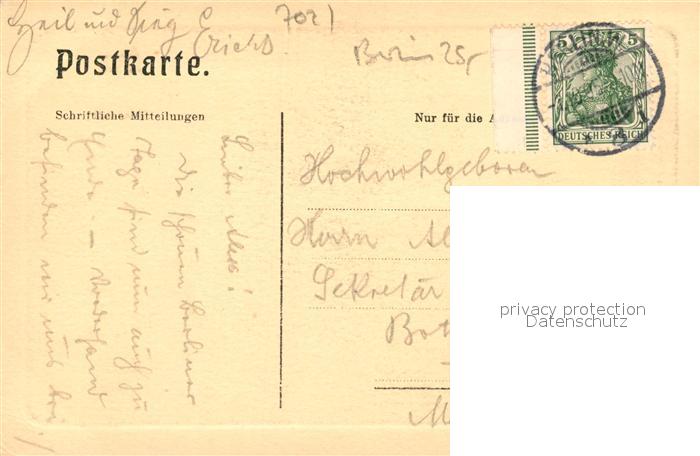 Heil und Sieg
Erich
7021
Postkarte.
Berlin 25,-
5 5
DEUTSCHES REICH
Schriftliche Mitteilungen
Nur für die A
Lieber Alex!
Die schönen Berliner
Tage sind nun auch zu
Ende. –
befinden wir uns bei
Hochwohlgeboren
Herrn Al
Sekretär
Bot
M
privacy protection
Datenschutz